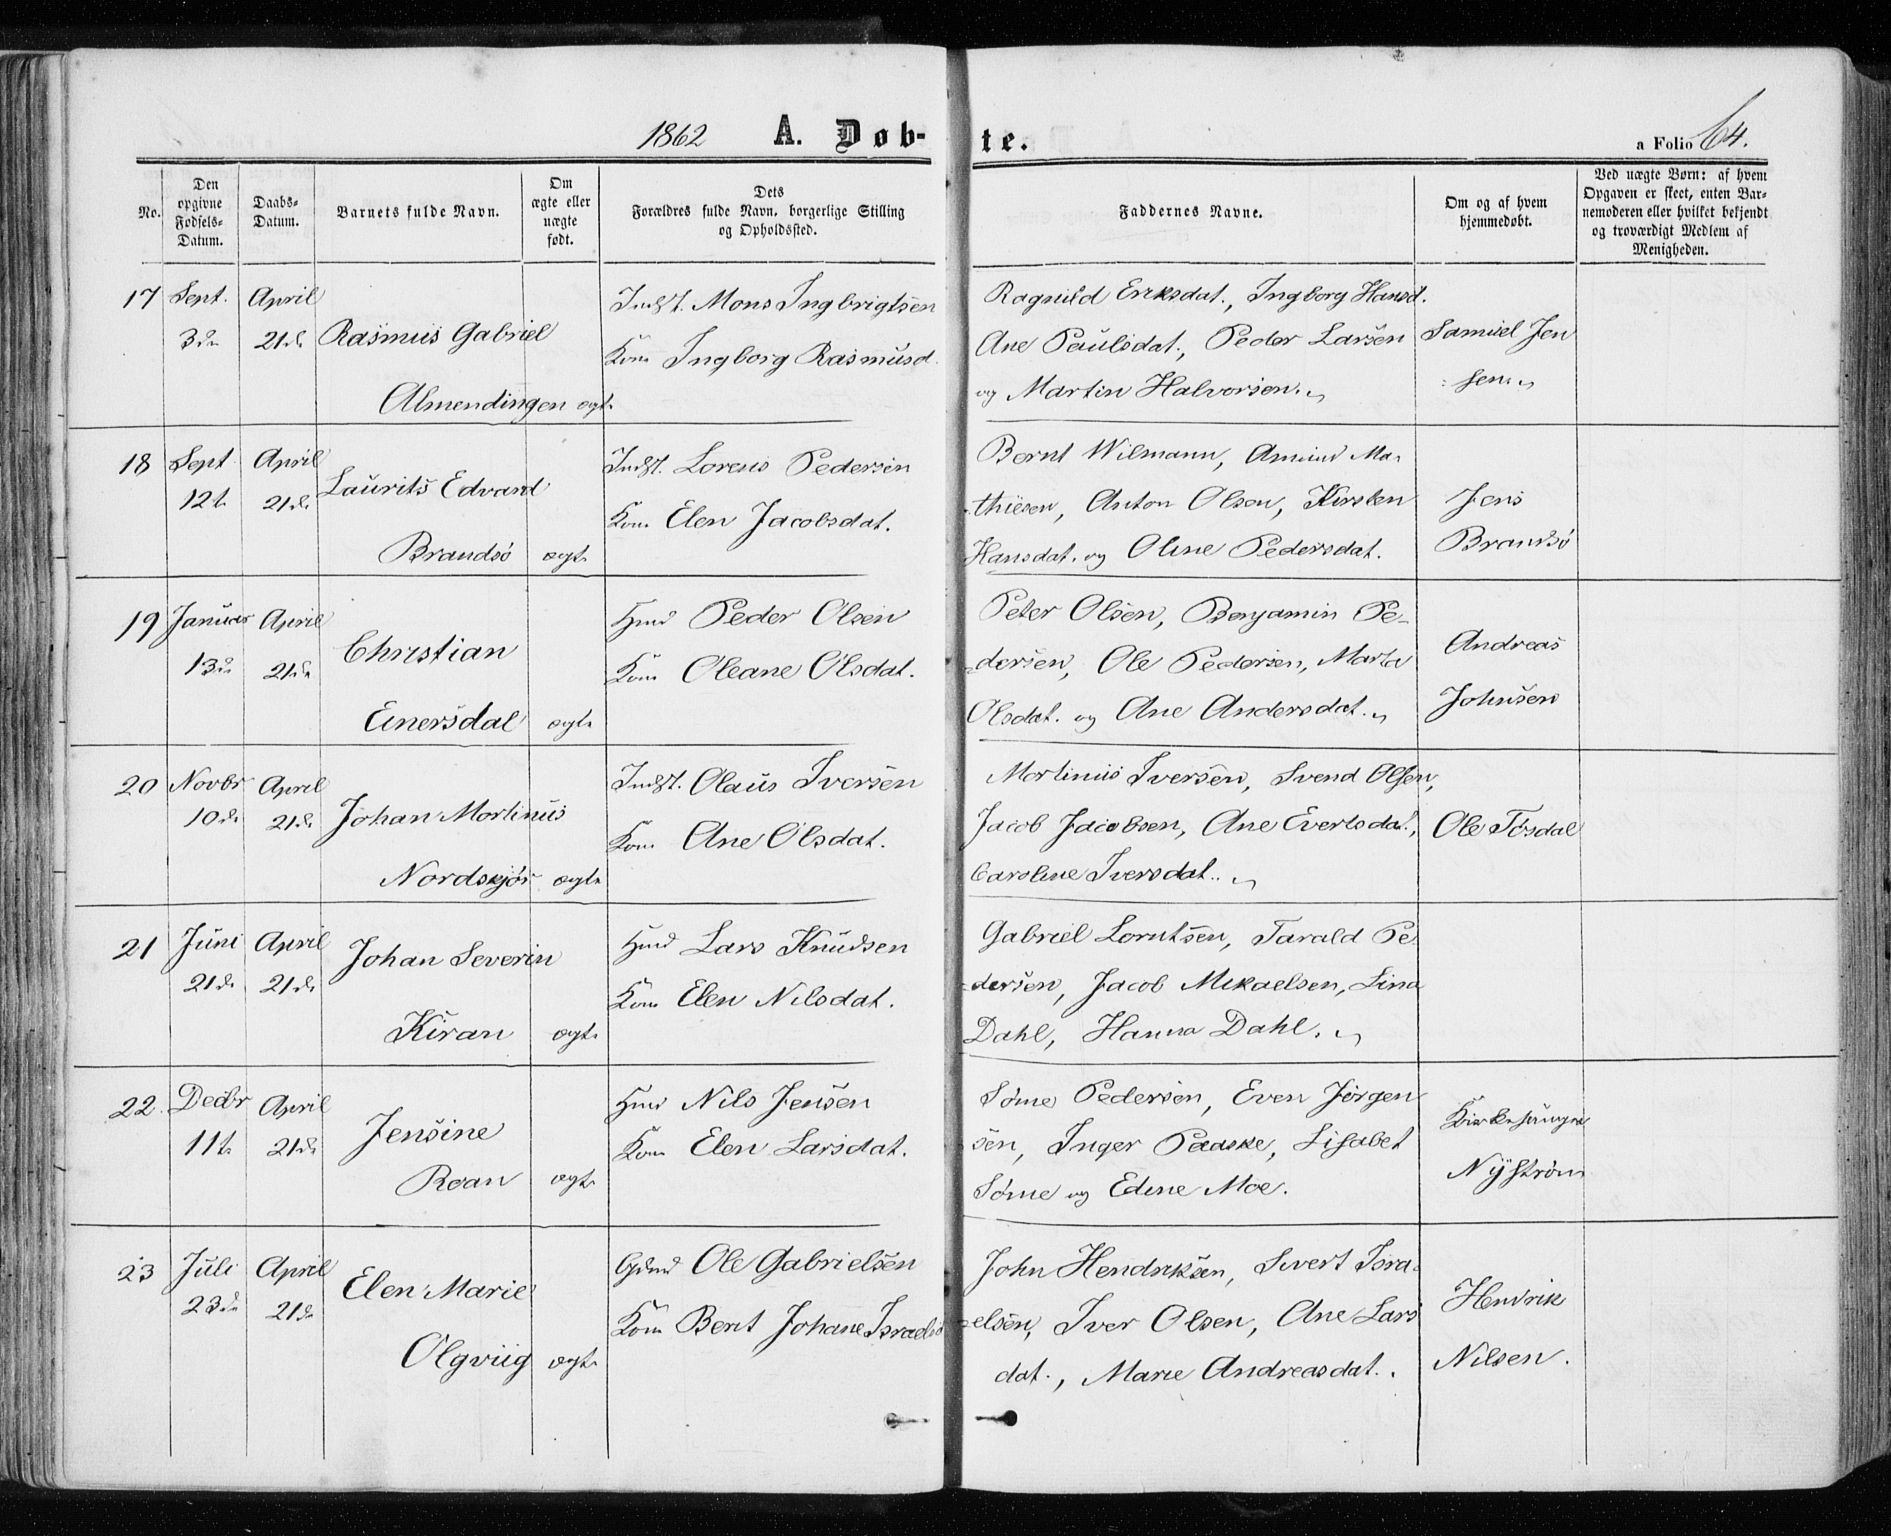 1862 A. Døb-
te.
a Folio 64.
No.
Den
opgivne
Fødsels-
Datum.
Daabs-
Datum.
Barnets fulde Navn.
Om
ægte eller
uægte
født.
Dets
Forældres fulde Navn, borgerlige Stilling
og Opholdssted.
Faddernes Navne.
Om og af hvem
hjemmedøbt.
Ved uægte Børn: af hvem
Opgaven er skeet, enten Bar-
nemoderen eller hvilket bekjendt
og troværdigt Medlem af
Menigheden.
17 Sept. April
3de 21de Rasmus Gabriel
Almendingen ægte
Indst. Mons Ingbrigtsen
Kone Ingborg Rasmusd.
Ragnild Eriksdat., Ingborg Hansd.
Ane Paulsdat., Peder Larsen
og Martin Halvorsen.
Samuel Jen
sen.
18 Sept April
12te 21de Laurits Edvard
Brandsø ægte
Indst. Lorens Pedersen
Kone Elen Jacobsdat.
Bernt Wilmann, Amund Ma-
thiesen, Anton Olsen, Kirsten
Hansdat. og Oline Pedersdat.
Jens
Brandsø
19 Januar April
13de 21de Christian
Einersdal ægte
Hmd Peder Olsen
Kone Oleane Olsdat.
Peter Olsen, Benjamin Pe-
dersen, Ole Pedersen, Marta
Olsdat. og Ane Andersdat.
Andreas
Johnsen
20 Novbr April
10de 21de Johan Martinus
Nordskjør ægte
Indst. Olaus Iversen
Kone Ane Olsdat.
Martinus Iversen, Svend Olsen,
Jacob Jacobsen, Ane Evertsdat.,
Caroline Iversdat.
Ole Tøsdal
21 Juni April
21de 21de Johan Severin
Kiran ægte
Hmd Lars Knudsen
Kone Elen Nilsdat.
Gabriel Lorntsen, Tarald Pe-
dersen, Jacob Mikaelsen, Lina
Dahl, Hanna Dahl.
22. Decbr April
11te 21de Jensine
Roan ægte
Hmd Nils Jensen
Kone Elen Larsdat.
Søme Pedersen, Even Jørgen
sen, Inger Paaske, Lisabet
Søme og Edine Moe.
Kirkesanger
Nyström
23 Juli April
23de 21de Elen Marie
Olgviig ægte
Gdmd Ole Gabrielsen
Kone Berit Johane Israelsd
John Hendriksen, Sivert Isra-
elsen, Iver Olsen, Ane Lars
dat., Marie Andreasdat.
Hendrik
Nilsen.